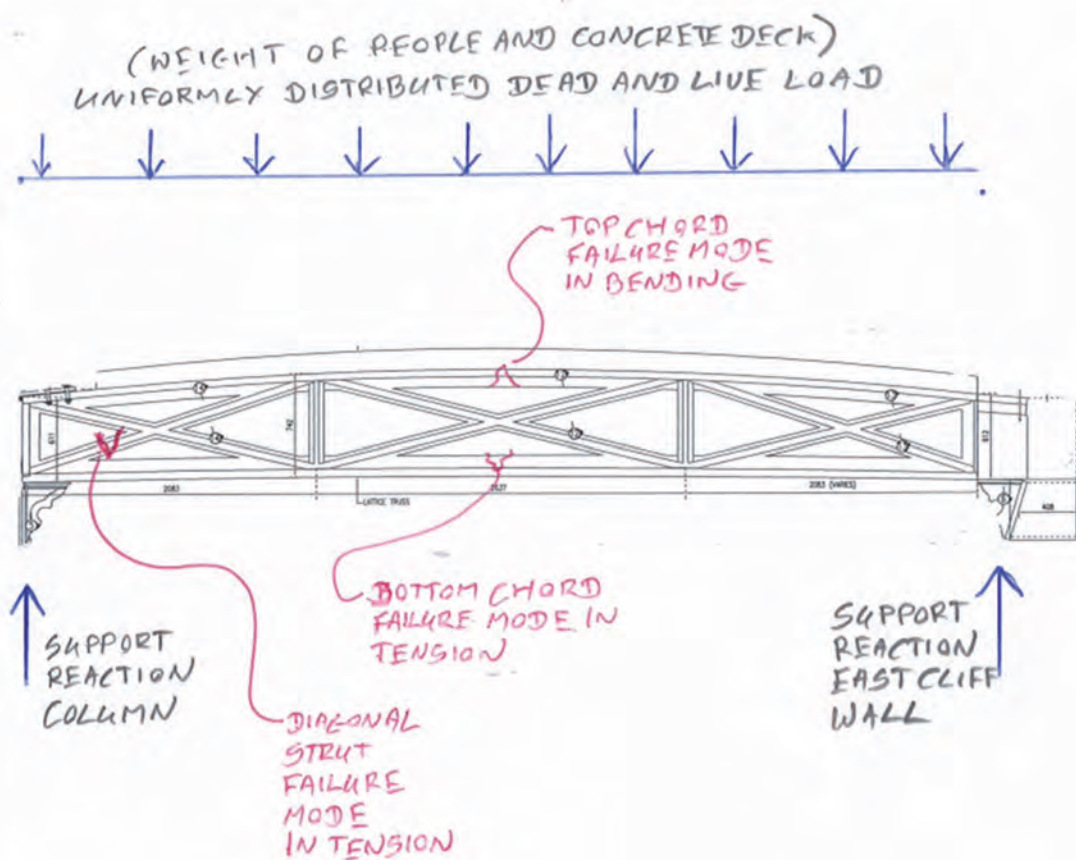 (WEIGHT OF PEOPLE AND CONCRETE DECK)
UNIFORMLY DISTRIBUTED DEAD AND LIVE LOAD
TOP CHORD
FAILURE MODE
IN BENDING
611
742
612
2083
LATTICE TRUSS
2083 (VARIES)
408
BOTTOM CHORD
FAILURE MODE IN
TENSION
SUPPORT
REACTION
COLUMN
SUPPORT
REACTION
EAST CLIFF
WALL
DIAGONAL
STRUT
FAILURE
MODE
IN TENSION